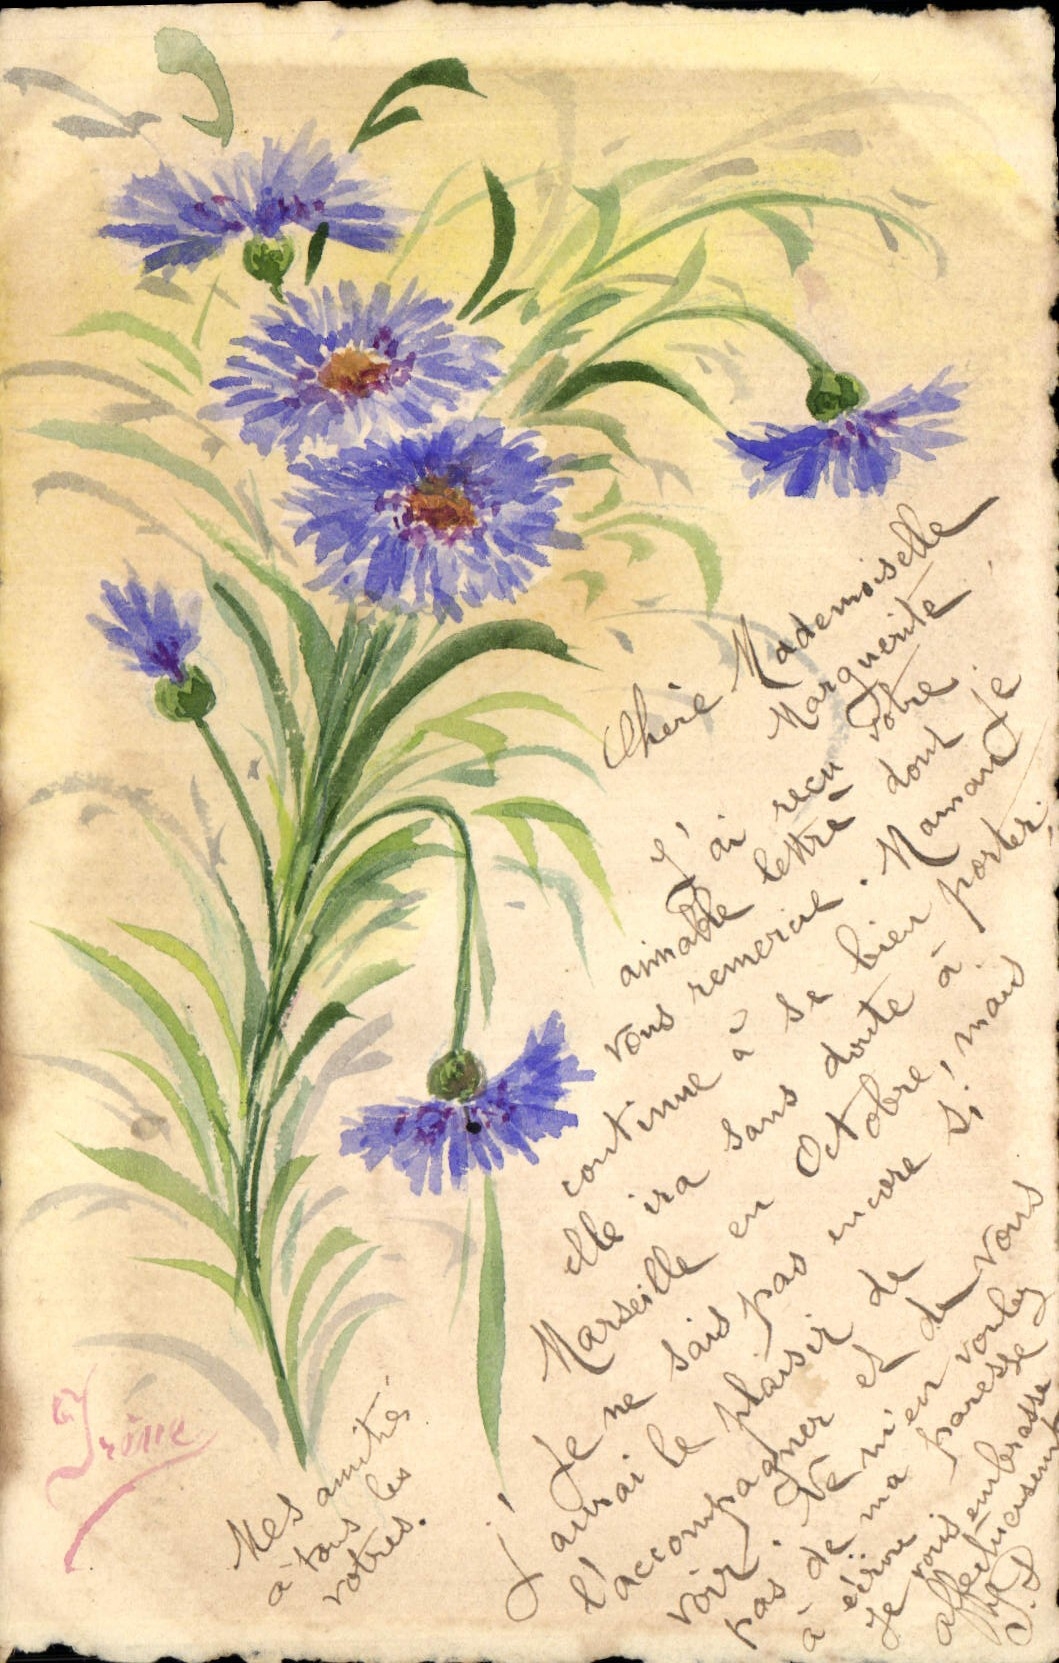 Chère Mademoiselle
Marguerite
J'ai reçu votre
aimable lettre dont je
vous remercie. Maman
continue à se bien porter,
elle ira sans doute à
Marseille en Octobre, mais
Je ne sais pas encore si
j'aurai le plaisir de
l'accompagner et de vous
voir. Ne m'en voulez
pas de ma paresse
à écrire
Je vous embrasse
affectueusement
Mes amitiés
à tous les
votres.
Irène